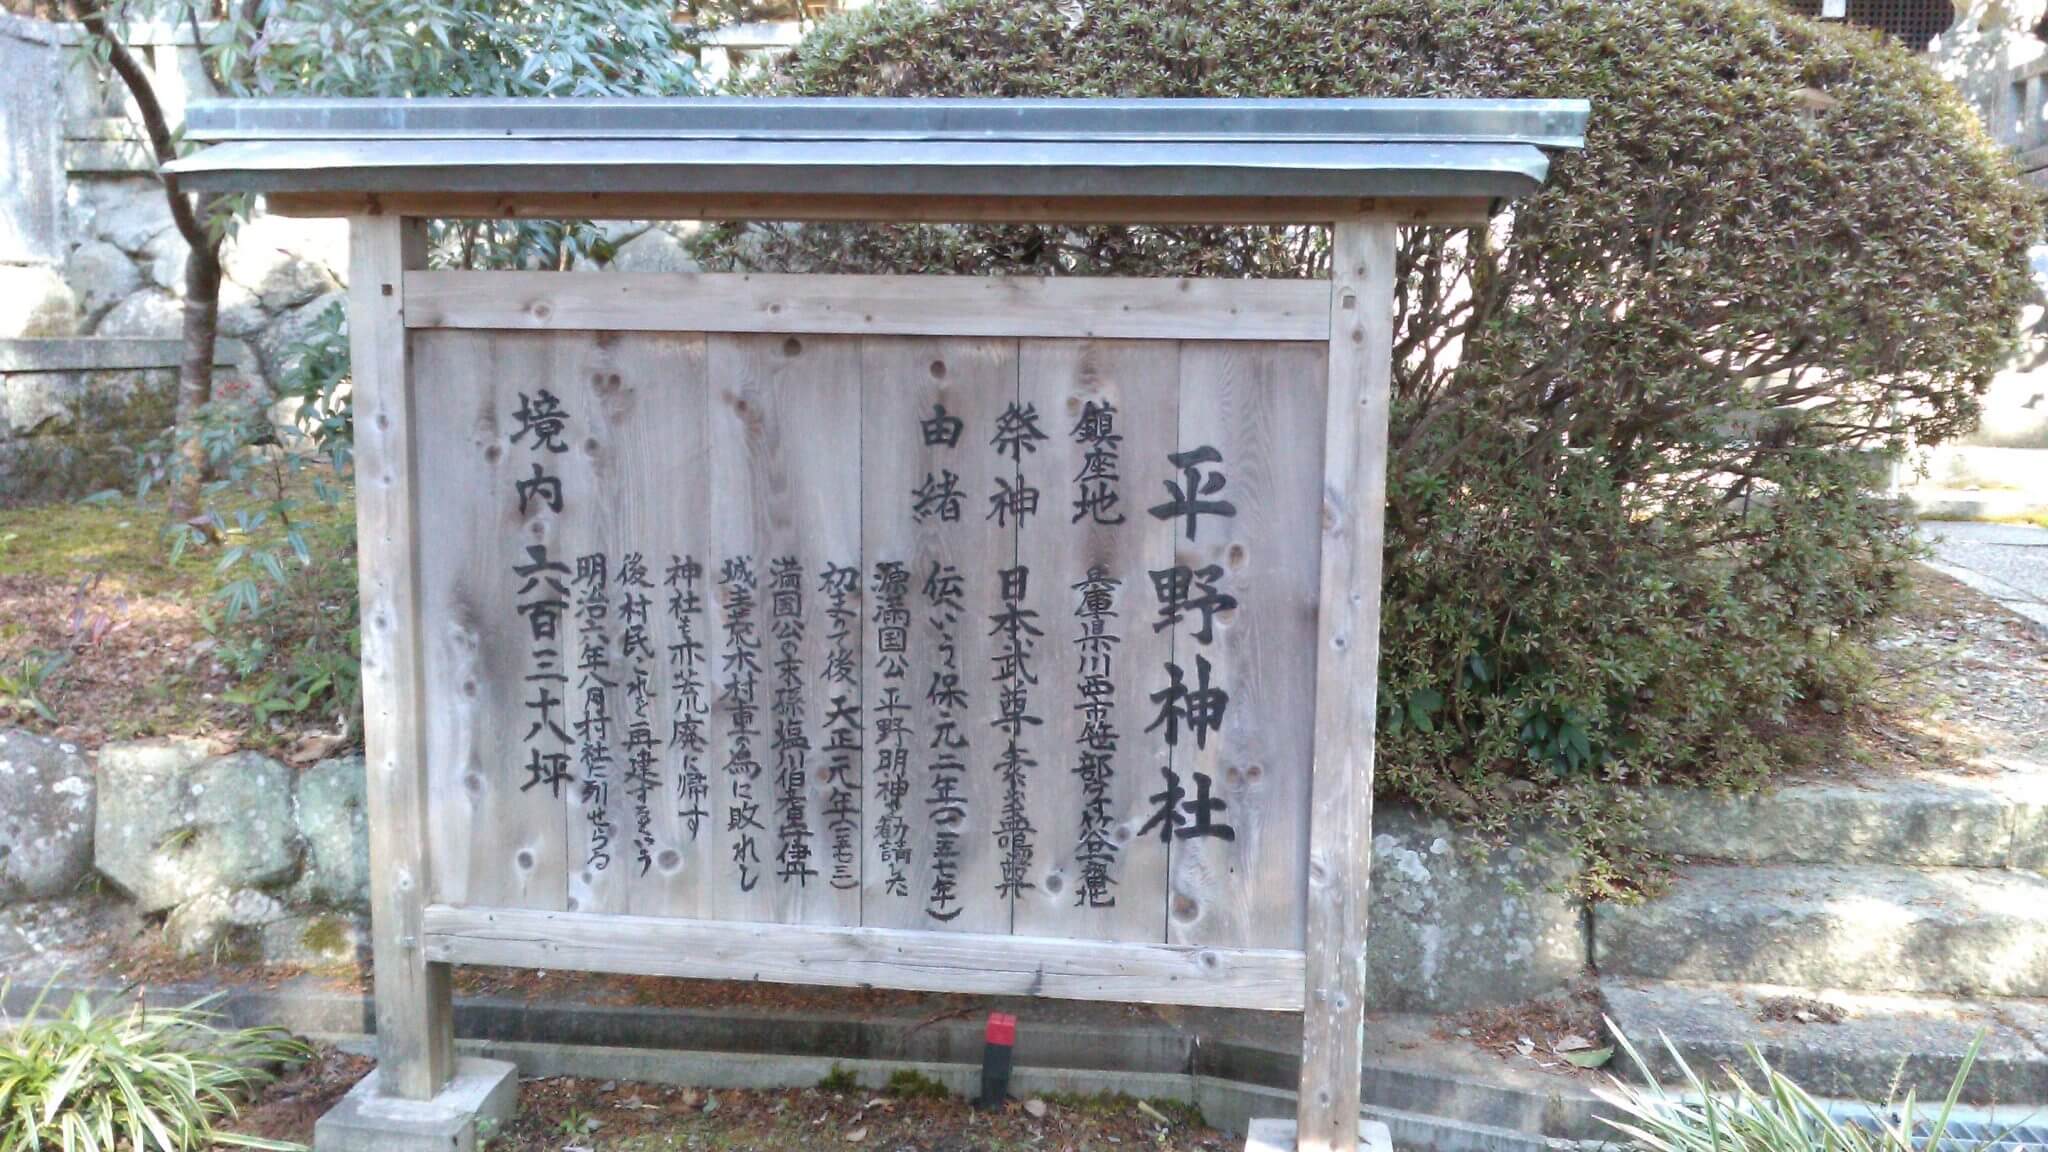 平野神社
鎮座地 兵庫県川西市笹部字竹谷一番地
祭神 日本武尊 素盞嗚尊
由緒 伝いう保元二年(一一五七年)
源満国公平野明神を勧請した
初まりで後、天正元年(一五七三)
満国公の末孫塩川伯耆守伊丹
城主荒木村重の為に敗れし
神社も亦荒廃に帰す
後村民これを再建すという
明治六年八月村社に列せらる
境内 六百三十八坪